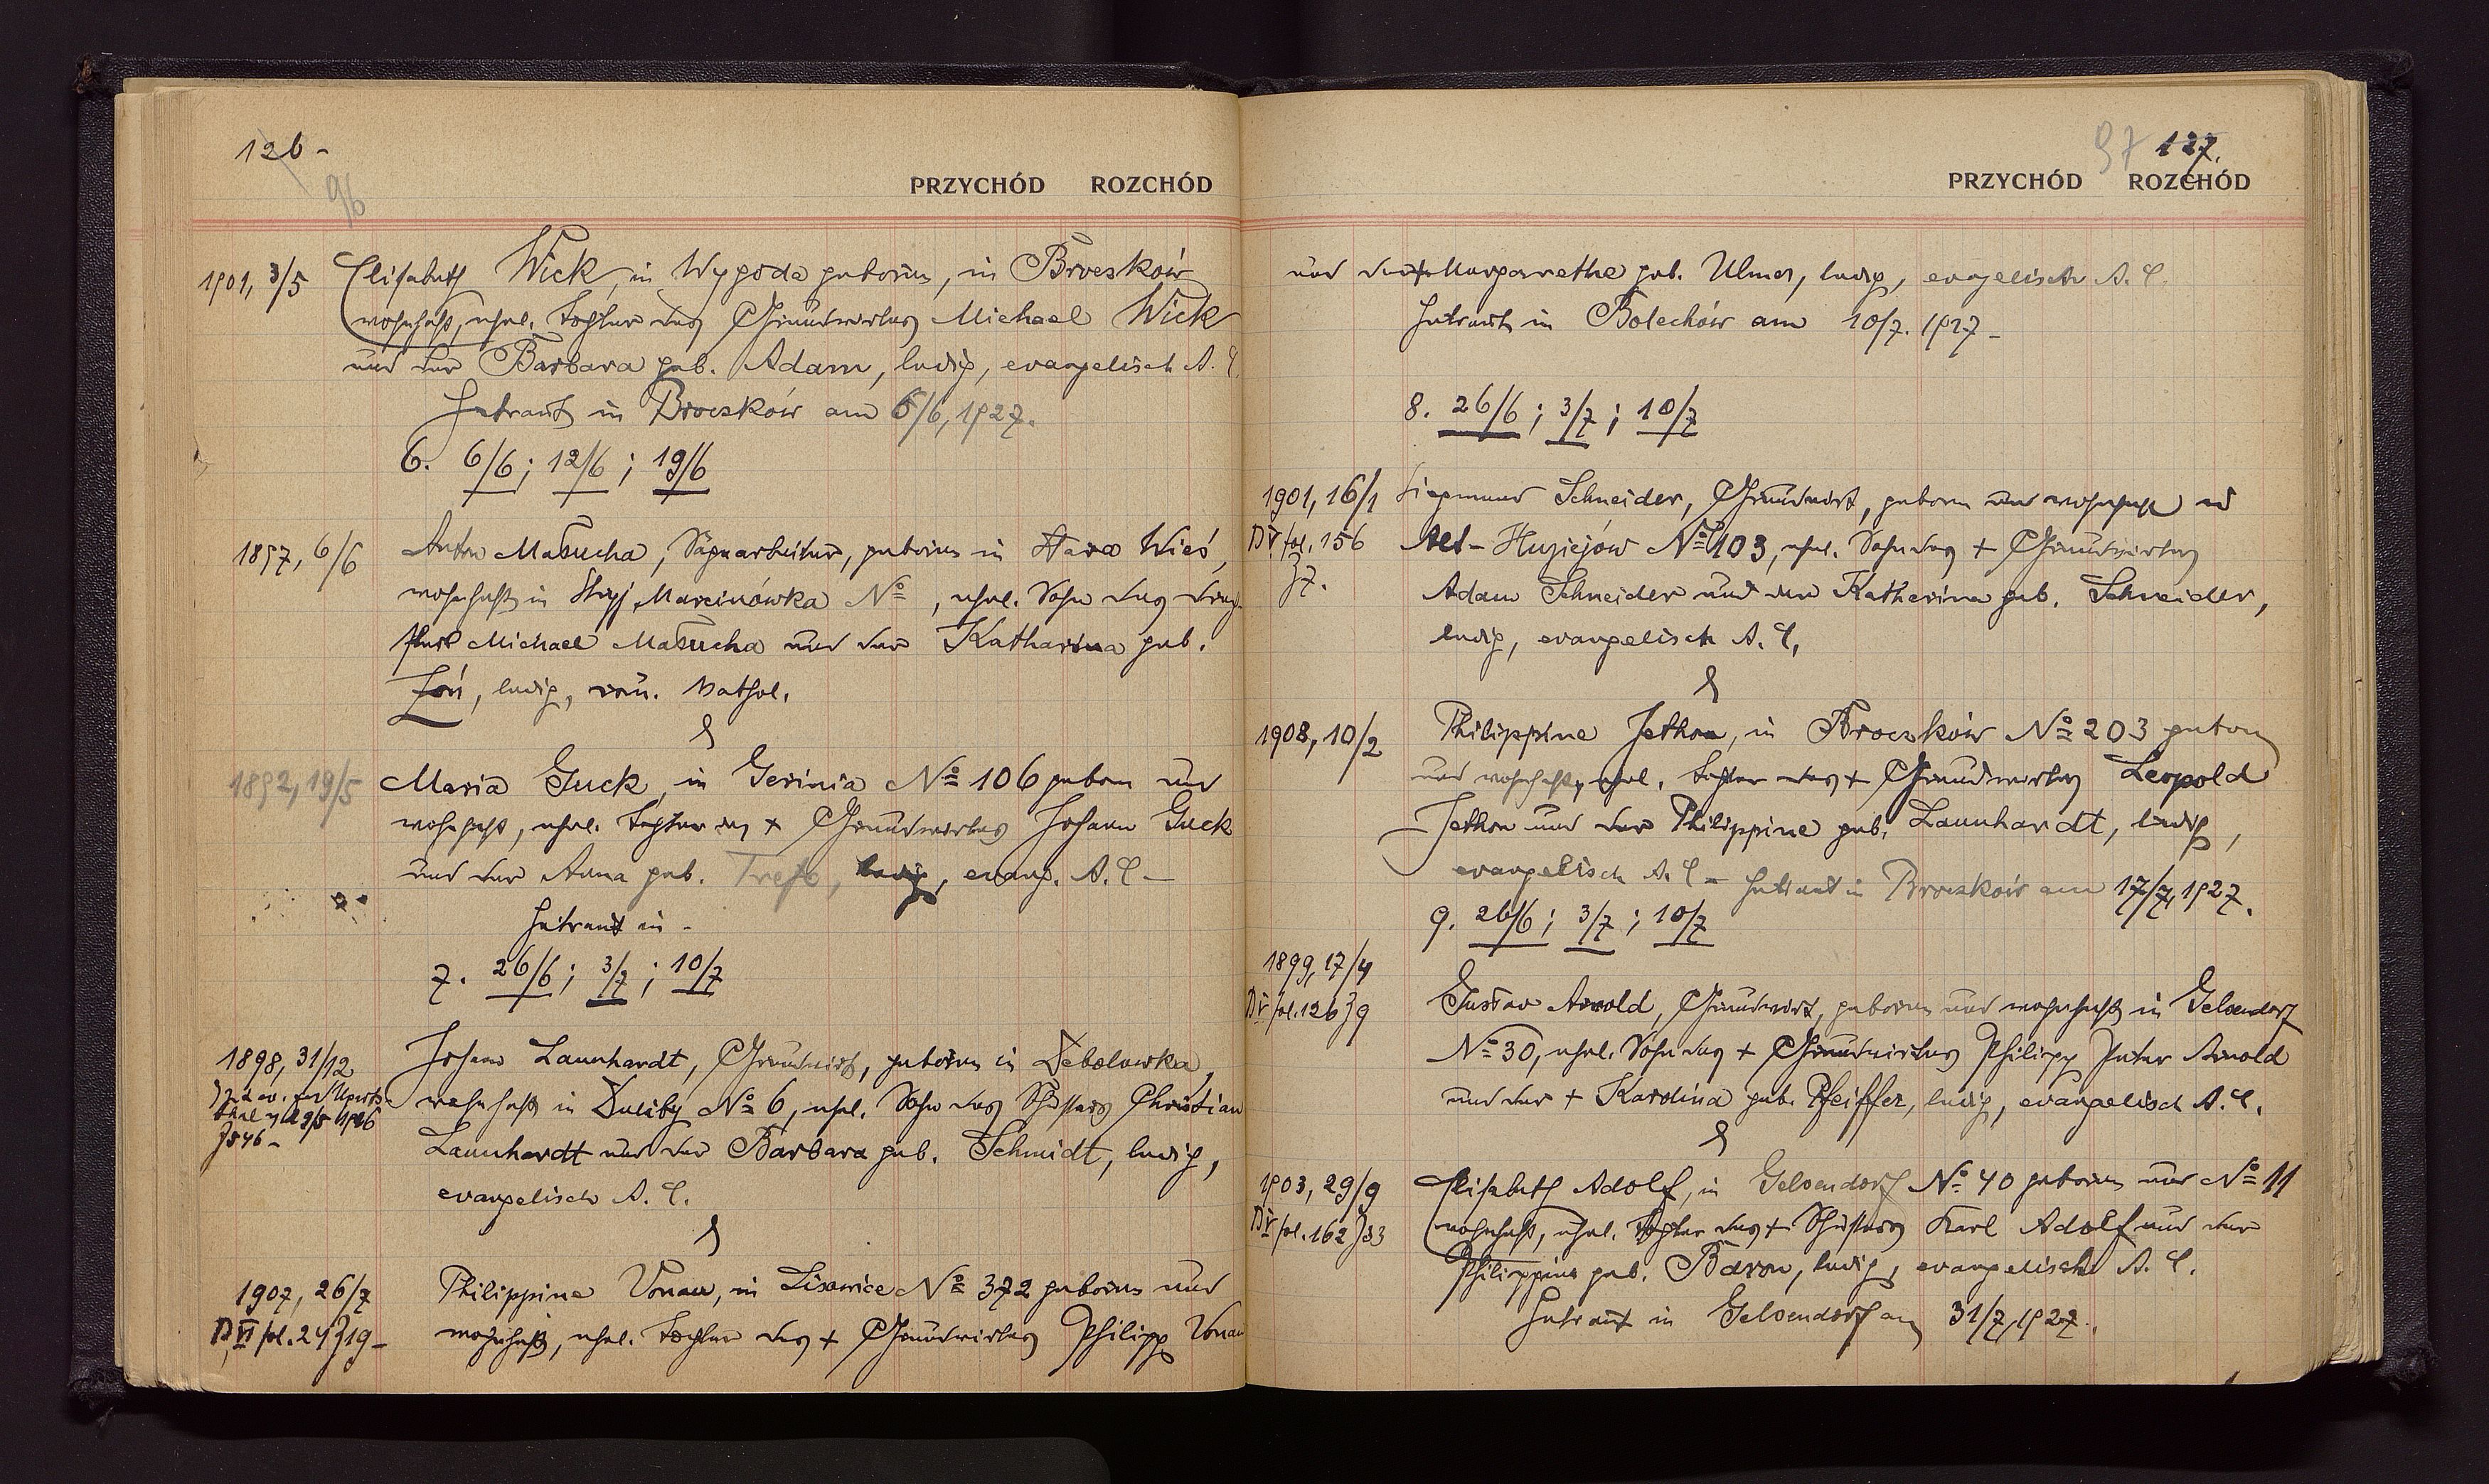 126 -
96
PRZYCHÓD ROZCHÓD
1901, 3/5 Elisabeth Wick, in Wygoda geboren, in Broczków
wohnhaft, ehel. Tochter des Grundwirtes Michael Wick
und der Barbara geb. Adam, ledig, evangelisch A. C.
Getraut in Broczków am 6/6, 1927.
6. 6/6; 12/6; 19/6
1897, 6/6 Anton Masucha, Sägearbeiter, geboren in Stara Wieś,
wohnhaft in Stryj, Marcinówka No, ehel. Sohn des
Michael Masucha und der Katharina geb.
Zoń, ledig, röm. kathol.
&
1892, 19/5 Maria Guck, in Gerinia No 106 geboren und
wohnhaft, ehel. Tochter des + Grundwirtes Johann Guck
und der Anna geb. Trefz, ledig, evang. A. C. -
Getraut in -
7. 26/6; 3/7; 10/7
1898, 31/12 Johann Launhardt, Grundwirt, geboren in Debolowka,
wohnhaft in Duliby No 6, ehel. Sohn des Schusters Christian
Launhardt und der Barbara geb. Schmidt, ledig,
evangelisch A. C.
&
1907, 26/7 Philippine Vonau, in Lisowice No 372 geboren und
D, VI fol. 24 J 19 - wohnhaft, ehel. Tochter des + Grundwirtes Philipp Vonau
97 127.
PRZYCHÓD ROZCHÓD
und der + Margarethe geb. Ulmer, ledig, evangelisch A. C.
Getraut in Bolechów am 10/7. 1927 -
8. 26/6; 3/7; 10/7
1901, 16/1 Siegmund Schneider, Grundwirt, geboren und wohnhaft in
D V fol. 156 Alt-Huziejów No 103, ehel. Sohn des + Grundwirtes
J 7. Adam Schneider und der Katherina geb. Schneider,
ledig, evangelisch A. C.
&
1908, 10/2 Philippine Jethon, in Broczków No 203 geboren
und wohnhaft, ehel. Tochter des + Grundwirtes Leopold
Jethon und der Philippine geb. Launhardt, ledig,
evangelisch A. C. - Getraut in Broczków am 17/7, 1927.
9. 26/6; 3/7; 10/7
1899, 17/4
D V fol. 126 J 9 Gustav Arnold, Grundwirt, geboren und wohnhaft in Gelsendorf
No 30, ehel. Sohn des + Grundwirtes Philipp Peter Arnold
und der + Karolina geb. Pfeiffer, ledig, evangelisch A. C.
&
1903, 29/9 Elisabeth Adolf, in Gelsendorf No 40 geboren und No 11
D V fol. 162 J 33 wohnhaft, ehel. Tochter des + Schusters Karl Adolf und der
Philippine geb. Baron, ledig, evangelisch A. C.
Getraut in Gelsendorf am 31/7, 1927.